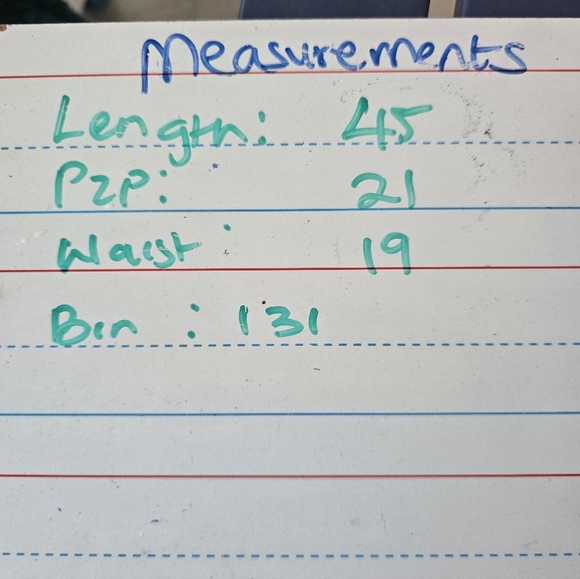 Measurements
Length: 45
P2P: 21
Waist: 19
Bin: 131